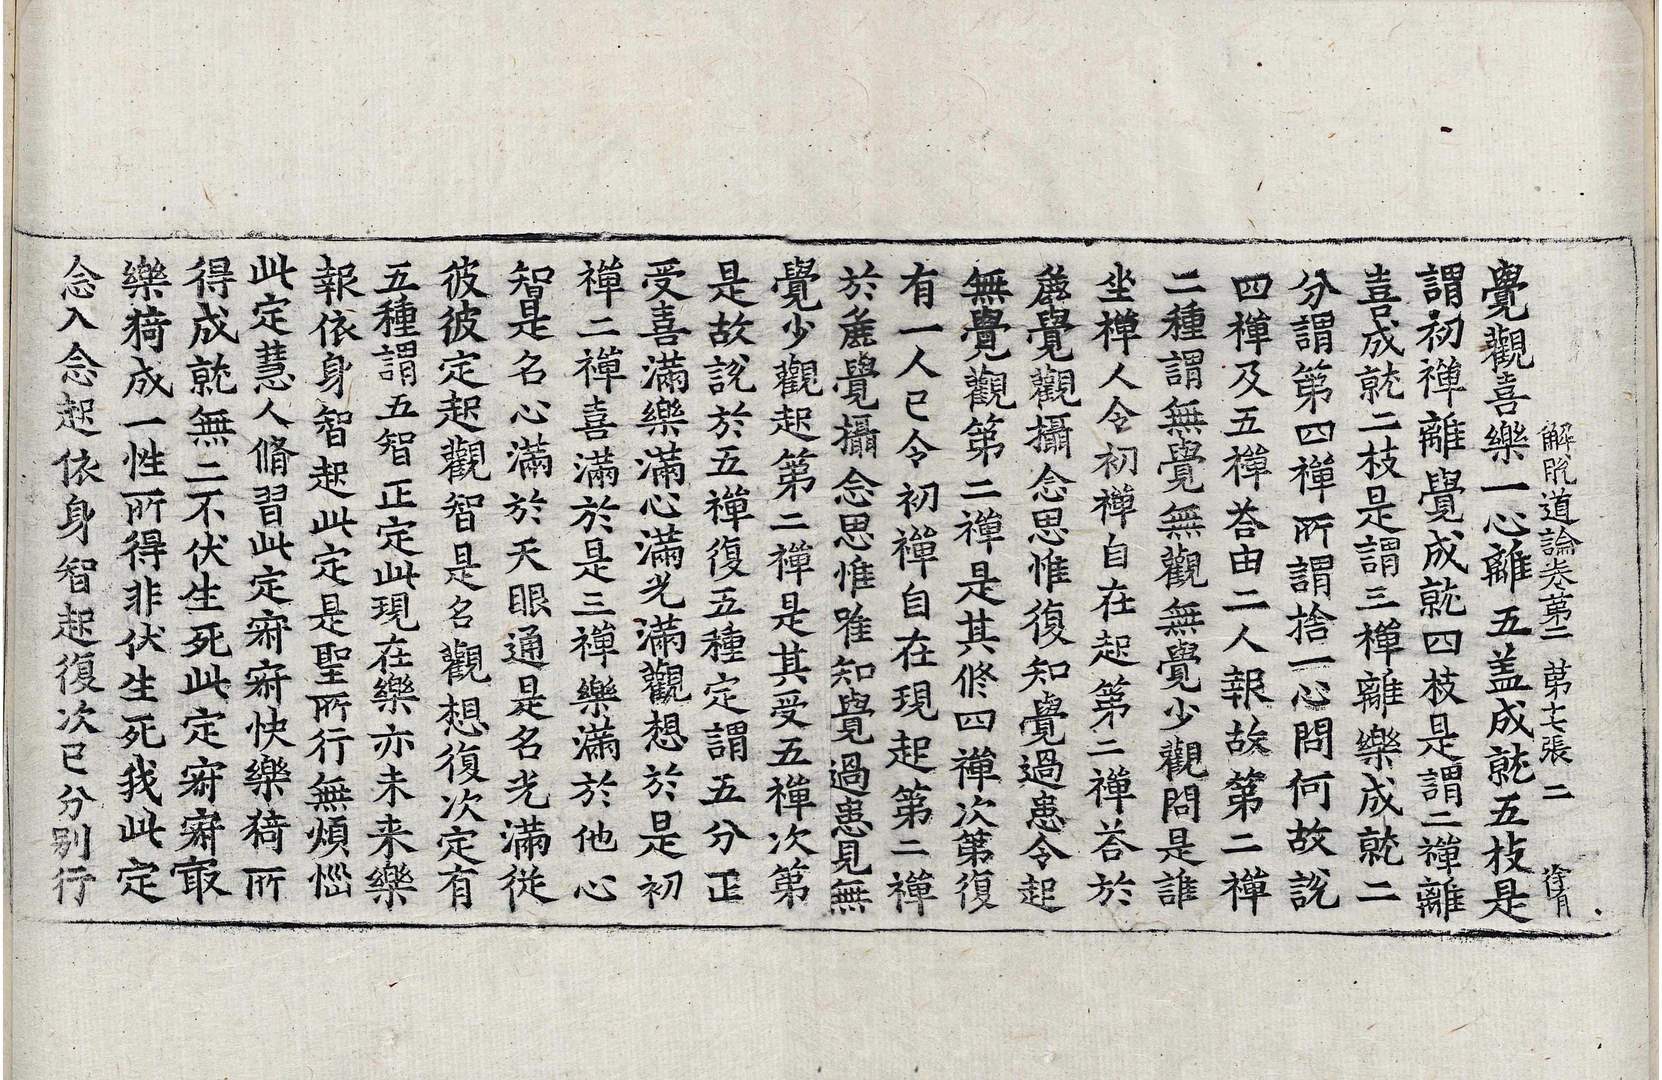 解脫道論卷第二 第七張 二
覺觀喜樂一心離五盖成就五枝是
謂初禪離覺成就四枝是謂二禪離
喜成就二枝是謂三禪離樂成就二
分謂第四禪所謂捨一心問何故說
四禪及五禪荅由二人報故第二禪
二種謂無覺無觀無覺少觀問是誰
坐禪人令初禪自在起第二禪荅於
麁覺觀攝念思惟復知覺過患令起
無覺觀第二禪是其修四禪次第復
有一人已令初禪自在現起第二禪
於麁覺攝念思惟唯知覺過患見無
覺少觀起第二禪是其受五禪次第
是故說於五禪復五種定謂五分正
受喜滿樂滿心滿光滿觀想於是初
禪二禪喜滿於是三禪樂滿於他心
智是名心滿於天眼通是名光滿從
彼彼定起觀智是名觀想復次定有
五種謂五智正定此現在樂亦未来樂
報依身智起此定是聖所行無煩惱
此定慧人脩習此定寂寂快樂猗所
得成就無二不伏生死此定寂寂㝡
樂猗成一性所得非伏生死我此定
念入念起依身智起復次已分别行